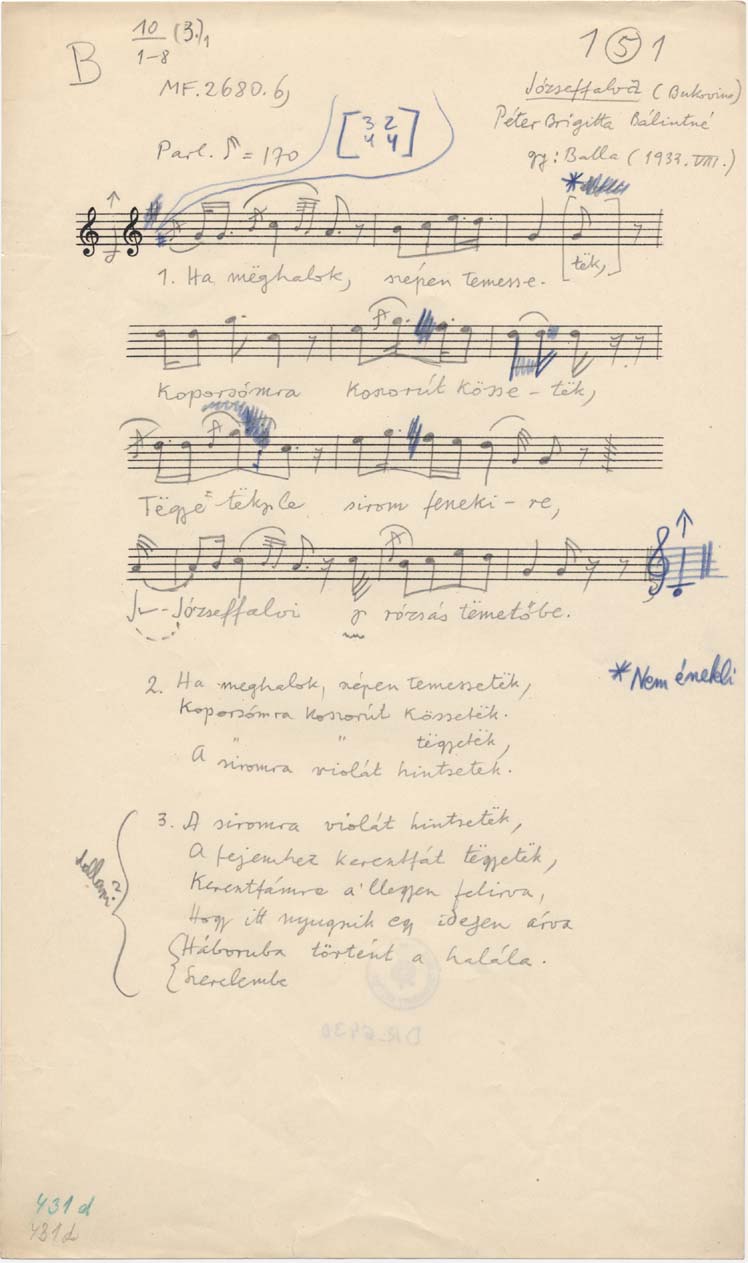 B
10 (3.)1
1–8
1 ⑤ 1
MF. 2680. b,
Józseffalva (Bukovina)
Péter Brigitta Bálintné
gy: Balla (1933. VIII.)
Parl. ♪ = 170
[3 2
4 4]
*
1. Ha mëghalok, szépen temesse- [tëk,]
Koporsómra koszorút kösse – tëk,
Tëgye tëk le sirom feneki – re,
Józseffalvi rózsás tëmetőbe.
* Nem énekli
2. Ha meghalok, szépen temessetëk,
Koporsómra koszorút kössetëk.
" " tëgyetëk,
A siromra violát hintsetek.
3. A siromra violát hintsetëk,
A fejemhez kerentfát tëgyetëk,
Kerentfámra a' llegyen felirva,
Hogy itt nyugszik egy idegen árva
Háboruba történt a halála.
Szerelembe
DR 6430
431d
431d